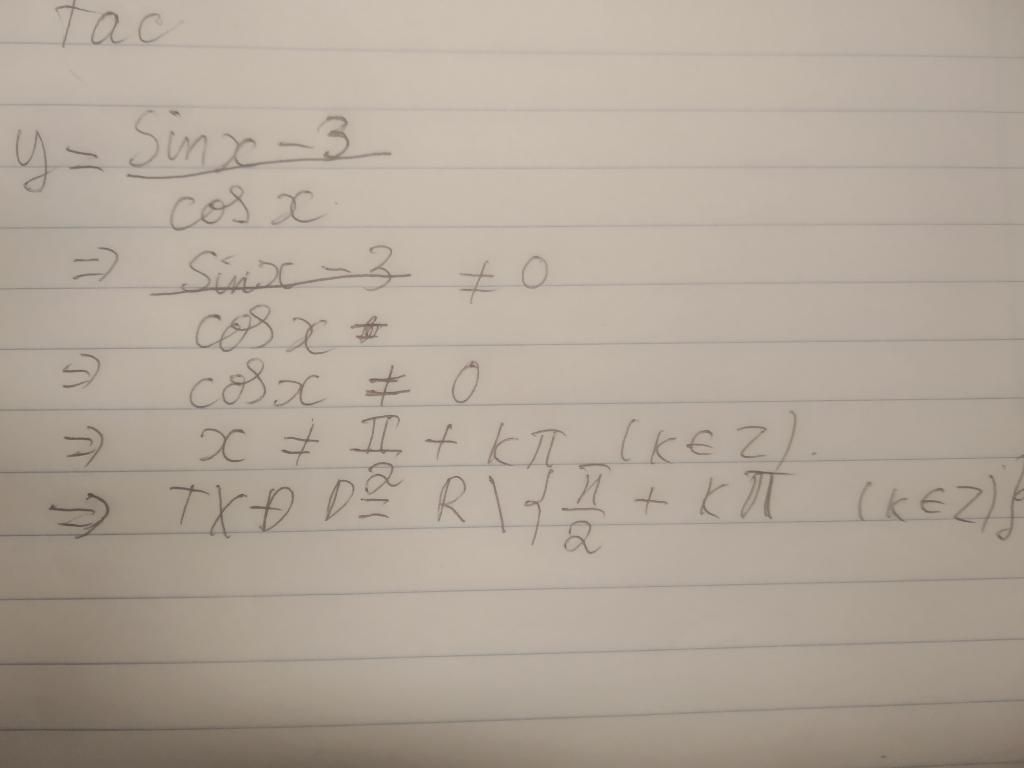 tac
y = (sinx - 3) / cos x
=> (sinx - 3) / cos x ≠ 0
=> cosx ≠ 0
=> x ≠ π/2 + kπ (k ∈ Z).
=> TXĐ D = R \ { π/2 + kπ (k ∈ Z) }